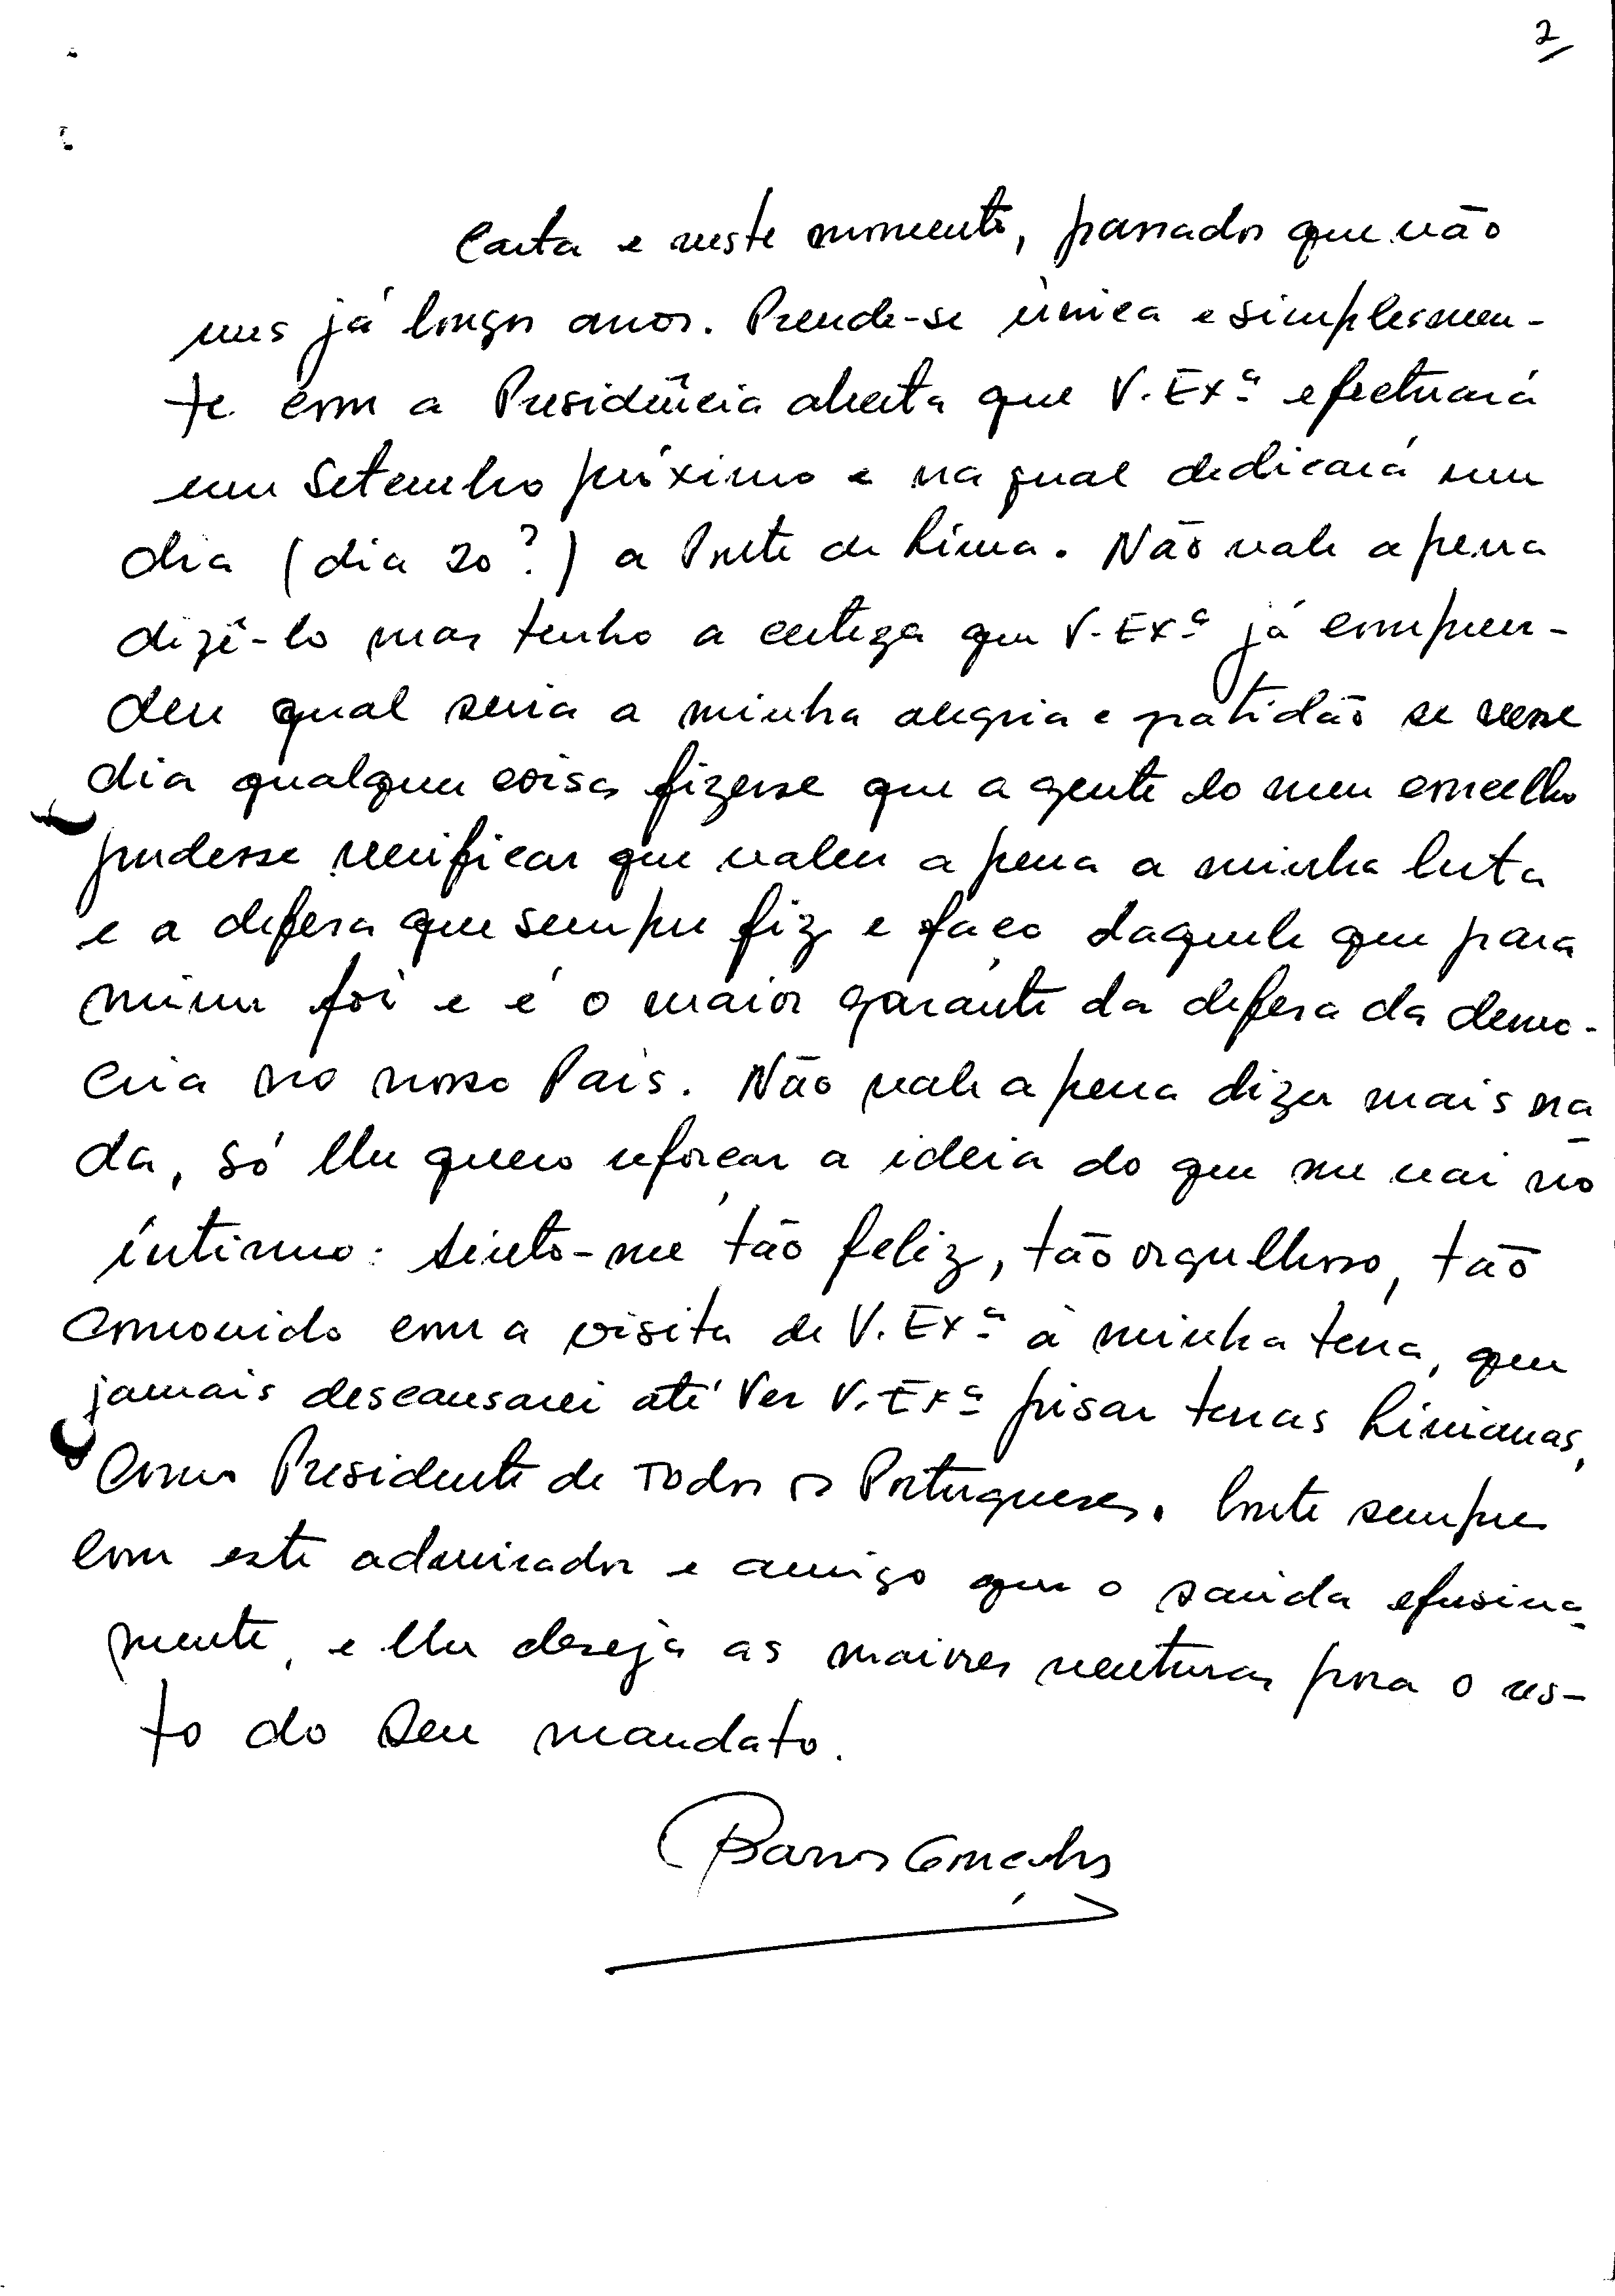 2
Carta e neste momento, passados que vão
uns já longos anos. Prende-se única e simplesmen-
te com a Presidência aberta que V. Exª efectuará
em Setembro próximo e na qual dedicará um
dia (dia 20?) a Ponte de Lima. Não vale a pena
dizê-lo mas tenho a certeza que V. Exª já compreen-
deu qual seria a minha alegria e gratidão se nesse
dia qualquer coisa fizesse que a gente do meu concelho
pudesse verificar que valeu a pena a minha luta
e a defesa que sempre fiz e faço daquele que para
mim foi e é o maior garante da defesa da demo-
cria no nosso País. Não vale a pena dizer mais na
da, só lhe quero reforçar a ideia do que me vai no
íntimo: sinto-me tão feliz, tão orgulhoso, tão
comovido com a visita de V. Exª à minha terra, que
jamais descansarei até ver V. Exª pisar terras Limianas,
como Presidente de Todos os Portugueses. Conte sempre
com este admirador e amigo que o saúda efusiva-
mente, e lhe deseja as maiores venturas para o res-
to do Seu mandato.
Barros Gonçalves